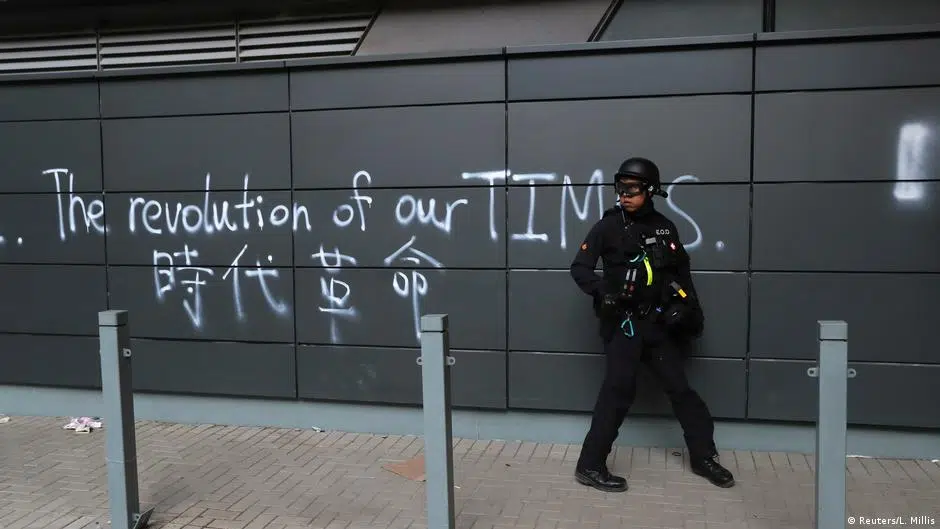 .. The revolution of our TIMES.
時代革命
E.O.D
© Reuters/L. Millis